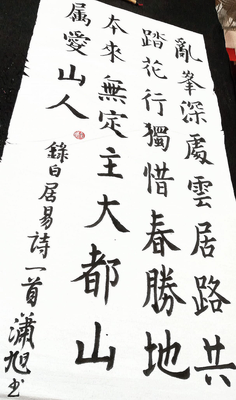 亂峯深處雲居路共
踏花行獨惜春勝地
本來無定主大都山
属愛山人
錄白居易詩一首瀟旭书